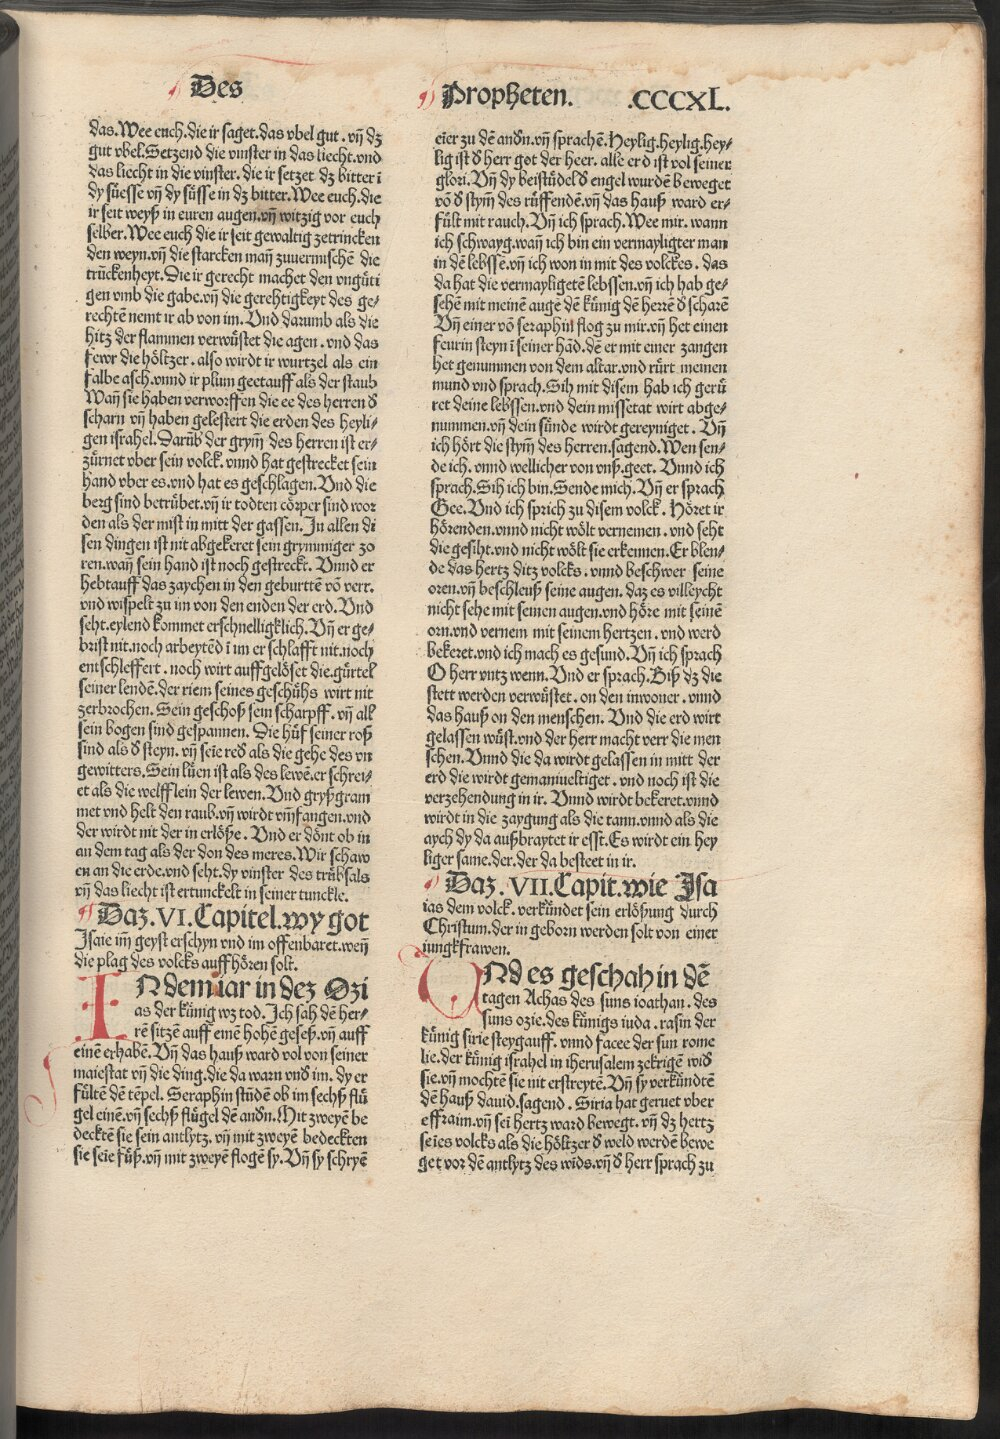 Des
Propheten. .CCCXL.
das.Wee euch.die ir saget.das vbel gut.vn̄ dz
gut vbel.Setzend die vinster in das liecht.vnd
das liecht in die vinster.die ir setzet dz bitter ī
dy süesse vn̄ dy süsse in dz bitter.Wee euch.die
ir seit weyß in euren augen.vn̄ witzig vor euch
selber.Wee euch die ir seit gewaltig zetrincken
den weyn.vn̄ die starcken man̄ zuuermischē die
trückenheyt.Die ir gerecht machet den vngüti
gen vmb die gabe.vn̄ die gerehtigkeyt des ge⸗
rechtē nemt ir ab von im.Vnd darumb als die
hitz der flammen verwüstet die agen.vnd das
fewr die höltzer.also wirdt ir wurtzel als ein
falbe asch.vnnd ir plum geetauff als der staub
Wan̄ sie haben verworffen die ee des herren d̓
scharn vn̄ haben gelestert die erden des heyli⸗
gen israhel.Darūb der grym̄ des herren ist er⸗
zürnet vber sein volck.vnnd hat gestrecket sein
hand vber es.vnd hat es geschlagen.Vnd die
berg sind betrübet.vn̄ ir todten cörper sind wor
den als der mist in mitt der gassen.In allen di
sen dingen ist nit abgekeret sein grymmiger zo
ren.wan̄ sein hand ist noch gestreckt.Vnnd er
hebtauff das zaychen in den geburttē vō verr.
vnd wispelt zu im von den enden der erd.Vnd
seht.eylend kommet erschnelligklich.Vn̄ er ge⸗
brist nit.noch arbeytēd ī im er schlafft nit.noch
entschleffert.noch wirt auffgelöset die.gürtel
seiner lendē.der riem seines geschühs wirt nit
zerbrochen.Sein geschoß sein scharpff.vn̄ all
sein bogen sind gespannen.Die hüf seiner roß
sind als d̓ steyn.vn̄ seīe red als die gehe des vn
gewitters.Sein lüen ist als des lewē.er schrei⸗
et als die welfflein der lewen.Vnd gryßgram
met vnd helt den raub.vn̄ wirdt vm̄fangen.vnd
der wirdt nit der in erlöße.Vnd er dönt ob in
an dem tag als der don des meres.Wir schaw
en an die erde.vnd seht.dy vinster des trübsals
vn̄ das liecht ist ertunckelt in seiner tunckle.
Daz.VI.Capitel.wy got
Isaie im̄ geyst erschyn vnd im offenbaret.wen̄
die plag des volcks auff hören solt.
IN dem iar in dez Ozi
as der künig wz tod.Ich sah dē her⸗
rē sitzē auff einē hohē geseß.vn̄ auff
einē erhabē.Vn̄ das hauß ward vol von seiner
maiestat vn̄ die ding.die da warn vnd̓ im.dy er
fültē dē tēpel.Seraphin stūdē ob im sechß flü
gel einē.vn̄ sechß flügel dē and̓n.Mit zweyē be
decktē sie sein antlytz.vn̄ mit zweyē bedeckten
sie seīe füß.vn̄ mit zweyē flogē sy.Vn̄ sy schryē
eier zu dē and̓n.vn̄ sprachē.Heylig.heylig.hey⸗
lig ist d̓ herr got der heer.alle erd ist vol seiner
glori.Vn̄ dy beistüdel d̓ engel wurdē beweget
vō d̓ stym̄ des rüffendē.vn̄ das hauß ward er⸗
fült mit rauch.Vn̄ ich sprach.Wee mir.wann
ich schwayg.wan̄ ich bin ein vermayligter man
in dē lebssē.vn̄ ich won in mit des volckes.das
da hat die vermayligetē lebssen.vn̄ ich hab ge⸗
sehē mit meinē augē dē künig dē herrē d̓ scharē
Vn̄ einer vō seraphin flog zu mir.vn̄ het einen
feurin steyn ī seiner hād.dē er mit einer zangen
het genummen von dem altar.vnd rürt meinen
mund vnd sprach.Sih mit disem hab ich gerü
ret deine lebssen.vnd dein missetat wirt abge⸗
nummen.vn̄ dein sünde wirdt gereyniget.Vn̄
ich hört die stym̄ des herren.sagend.Wen sen⸗
de ich.vnnd wellicher von vnß.geet.Vnnd ich
sprach.Sih ich bin.Sende mich.Vn̄ er sprach
Gee.Vnd ich sprich zu disem volck.Höret ir
hörenden.vnnd nicht wölt vernemen.vnd seht
die gesiht.vnd nicht wölt sie erkennen.Er blen⸗
de das hertz ditz volcks.vnnd beschwer seine
oren.vn̄ beschleuß seine augen.daz es villeycht
nicht sehe mit seinen augen.vnd höre mit seinē
orn.vnd vernem mit seinem hertzen.vnd werd
bekeret.vnd ich mach es gesund.Vn̄ ich sprach
O herr vntz wenn.Vnd er sprach.Biß dz die
stett werden verwüstet.on den inwoner.vnnd
das hauß on den menschen.Vnd die erd wirt
gelassen wüst.vnd der herr macht verr die men
schen.Vnnd die da wirdt gelassen in mitt der
erd die wirdt gemaniueltiget.vnd noch ist die
verzehendung in ir.Vnnd wirdt bekeret.vnnd
wirdt in die zaygung als die tann.vnnd als die
aych dy da außbraytet ir esst.Es wirdt ein hey
liger same.der.der da besteet in ir.
Daz.VII.Capit.wie Isa
ias dem volck.verkündet sein erlößung durch
Christum.der in geborn werden solt von einer
iungkfrawen.
VNd es geschah in dē
tagen Achas des suns ioathan.des
suns ozie.des künigs iuda.rasin der
künig sirie steygauff.vnnd facee der sun rome
lie.der künig israhel in iherusalem zekrigē wid̓
sie.vn̄ mochtē sie nit erstreytē.Vn̄ sy verkündtē
dē hauß dauid.sagend.Siria hat geruet vber
effraim.vn̄ sei hertz ward bewegt.vn̄ dz hertz
seīes volcks als die höltzer d̓ weld werdē bewe
get vor dē antlytz des wīds.vn̄ d̓ herr sprach zu